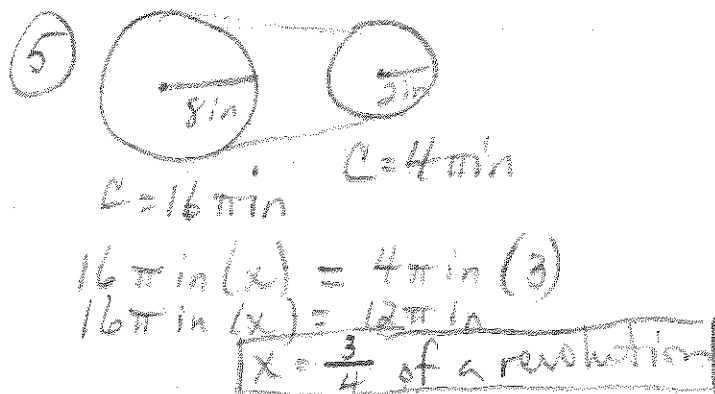 5
8 in
2 in
C = 16 π in
C = 4 π in
16 π in (x) = 4 π in (3)
16 π in (x) = 12 π in
x = 3/4 of a revolution